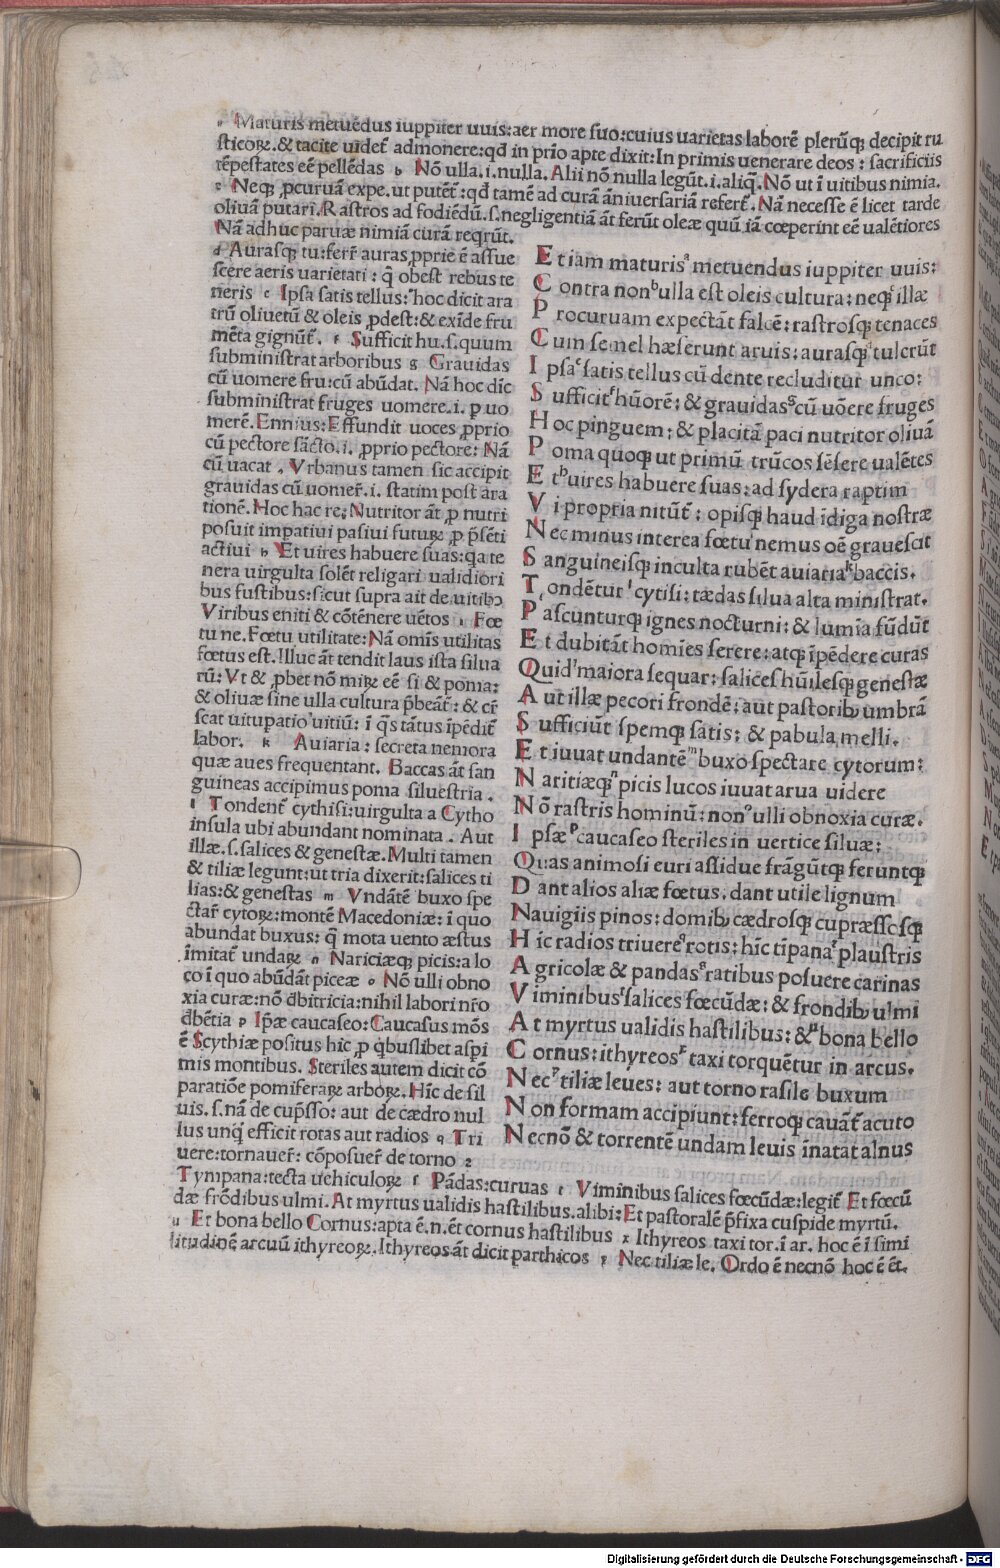 a Maturis metuēdus iuppiter uuis:aer more suo:cuius uarietas laborē plerūq; decipit ru
sticoꝝ.&tacite uidet̃ admonere:qđ in prio apte dixit:In primis uenerare deos: sacrificiis
tēpestates eē pellēdas b Nō ulla.i.nulla.Alii nō nulla legūt.i.aliq̄.Nō ut ī uitibus nimia.
c Neq; ꝓcuruā expe.ut putēt̃:qđ tamē ad curā āniuersariā refert̃.Nā necesse ē licet tarde
oliuā putari.Rastros ad fodiēdū.s.negligentiā āt ferūt oleæ quū iā cœperint eē ualētiores
Nā adhuc paruæ nimiā curā reqrūt.
d Aurasq; tu:ferr̃ auras ꝓprie ē assue
scere aeris uarietati: q̄ obest rebus te
neris e Ipsa satis tellus: hoc dicit ara
trū oliuetū & oleis ꝓdest:& exīde fru
mēta gignūt̃. f Sufficit hu.s.quum
subministrat arboribus g Grauidas
cū uomere fru:cū abūdat. Nā hoc dīc
subministrat fruges uomere.i.ꝓ uo
merē.Ennius:Effundit uoces ꝓprio
cū pectore sācto.i.ꝓprio pectore: Nā
cū uacat. Vrbanus tamen sic accipit
grauidas cū uomer̃.i. statim post ara
tionē.Hoc hac re: Nutritor āt ꝓ nutri
posuit impatiui pasiui futuꝝ ꝓ p̄sēti
actiui h Et uires habuere suas:qa te
nera uirgulta solēt religari ualidiori
bus fustibus:sicut supra ait de uitibꝰ
Viribus eniti & cōtēnere uētos i Fœ
tu ne.Fœtu utilitate: Nā omīs utilitas
fœtus est.Illuc āt tendit laus ista silua
rū:Vt & ꝓbet nō miꝝ eē si & poma:
& oliuæ sine ulla cultura p̄beāt̃: & cr̃
scat uitupatio uitiū: ī q̄s tātus īpēdit̃
labor. k Auiaria: secreta nemora
quæ aues frequentant. Baccas āt san
guineas accipimus poma siluestria.
l Tondent̃ cythisi:uirgulta a Cytho
insula ubi abundant nominata. Aut
illæ.s.salices & genestæ.Multi tamen
& tiliæ legunt:ut tria dixerit:salices ti
lias:& genestas m Vndātē buxo spe
ctar̃ cytoꝝ:montē Macedoniæ: ī quo
abundat buxus: q̄ mota uento æstus
īmitat̃ undaꝝ n Nariciæq; picis:a lo
co ī quo abūdāt piceæ o Nō ulli obno
xia curæ:nō đbitricia:nihil labori nr̄o
đbētia p Ip̄æ caucaseo:Caucasus mōs
ē Scythiæ positus hic ꝓ q̇buslibet aspi
mis montibus. Steriles autem dicit cō
paratiōe pomiferaꝝ arboꝝ. Hīc de sil
uis.s.nā de cup̄sso: aut de cædro nul
lus unq̄ efficit rotas aut radios q Tri
uere:tornauer̃: cōposuer̃ de torno r
Etiam maturis a metuendus iuppiter uuis:
Contra non b ulla est oleis cultura: neq; c illæ
Procuruam expectāt falcē: rastrosq; tenaces
Cum semel hæserunt aruis: aurasq; d tulerūt
Ipsa e satis tellus cū dente recluditur unco:
Sufficit f hūorē: & grauidas g cū uōere fruges
Hoc pinguem: & placitā paci nutritor oliuā
Poma quoq; ut primū trūcos sēsere ualētes
Et h uires habuere suas: ad sydera raptim
Vi propria nitūt̃: opisq; haud īdiga nostræ
Nec minus interea fœtu i nemus oē grauescit
Sanguineisq; inculta rubēt auiaria k baccis.
Tondētur l cytisi: tædas silua alta ministrat.
Pascunturq; ignes nocturni: & lumīa fūdūt
Et dubitāt homīes serere: atq; īpēdere curas
Quid maiora sequar: salices hūilesq; genestæ
Aut illæ pecori frondē: aut pastoribꝰ umbrā
Sufficiūt sepemq; satis: & pabula melli.
Et iuuat undantē m buxo spectare cytorum:
Naritiæq; n picis lucos iuuat arua uidere
Nō rastris hominū: non o ulli obnoxia curæ.
Ipsæ p caucaseo steriles in uertice siluæ:
Quas animosi euri assidue frāgūtq; feruntq;
Dant alios aliæ fœtus. dant utile lignum
Nauigiis pinos: domibꝰ cædrosq; cupræssosq;
Hic radios triuere q rotis: hīc tīpana r plaustris
Agricolæ & pandas s ratibus posuere carinas
Viminibus t salices fœcūdæ: & frondibꝰ ulmi
At myrtus ualidis hastilibus: & u bona bello
Cornus: ithyreos x taxi torquētur in arcus.
Nec y tiliæ leues: aut torno rasile buxum
Non formam accipiunt: ferroq; cauāt̃ acuto
Necnō & torrentē undam leuis īnatat alnus
Tympana:tecta uehiculoꝝ s Pādas:curuas t Viminibus salices fœcūdæ:legit̃ Et fœcū
dæ frōdibus ulmi. At myrtus ualidis hastilibus. alibi: Et pastoralē p̄fixa cuspide myrtū.
u Et bona bello Cornus:apta ē.n.ēt cornus hastilibus x Ithyreos taxi tor.ī ar. hoc ē ī simi
litudinē arcuū ithyreoꝝ. Ithyreos āt dicit parthicos y Nec tiliæ le. Ordo ē necnō hoc ē ēt.
Digitalisierung gefördert durch die Deutsche Forschungsgemeinschaft - DFG